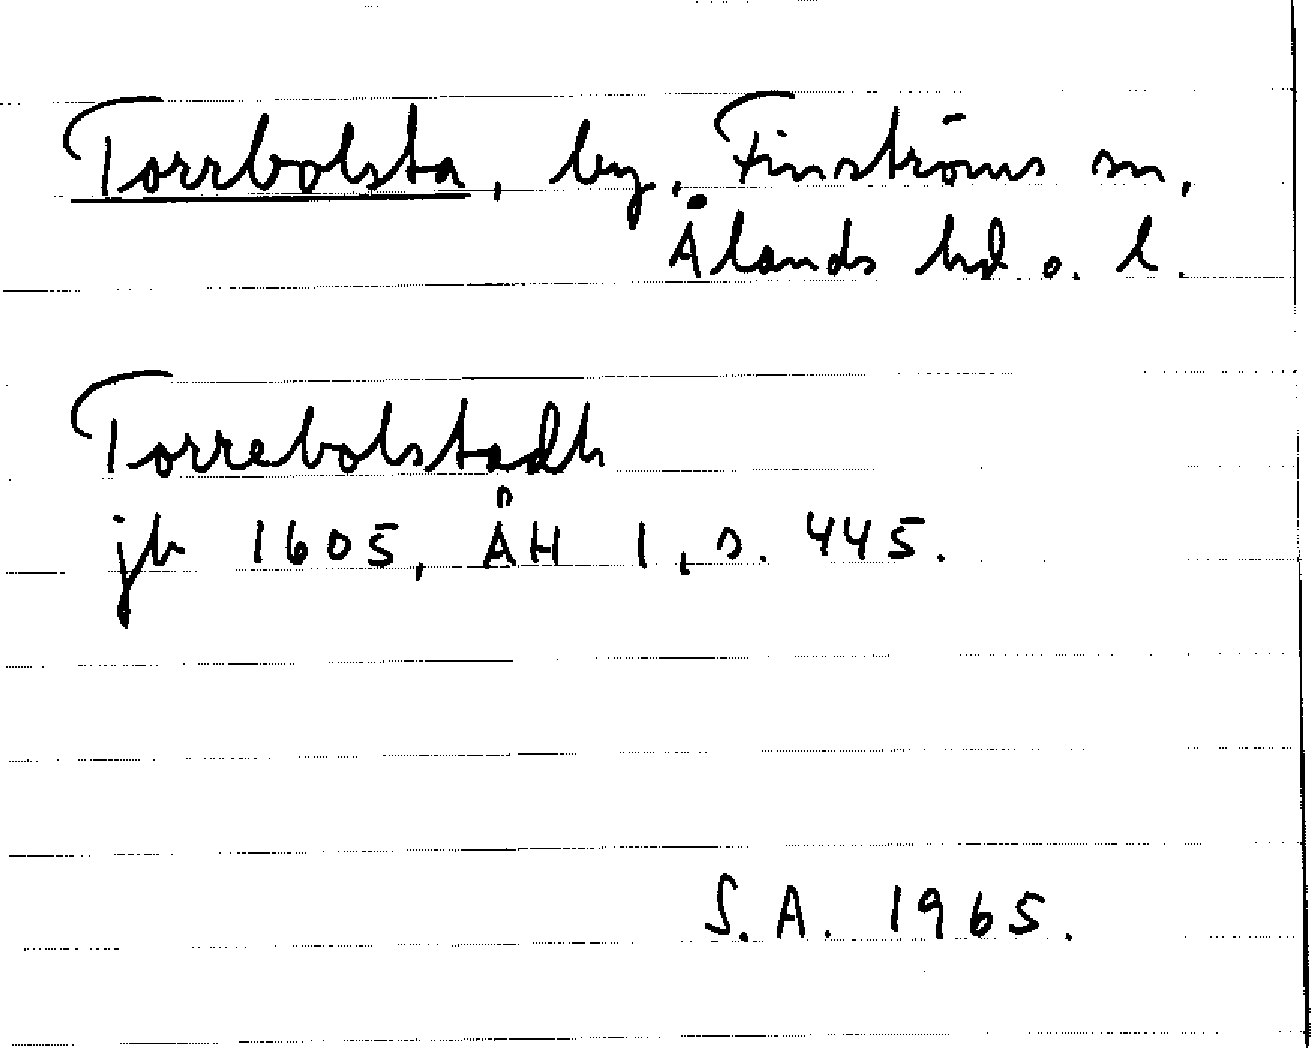 Torrbolsta, by, Finströms sn,
Ålands hd o. l.
Torrebolstadh
jb 1605, ÅH 1, s. 445.
S.A. 1965.